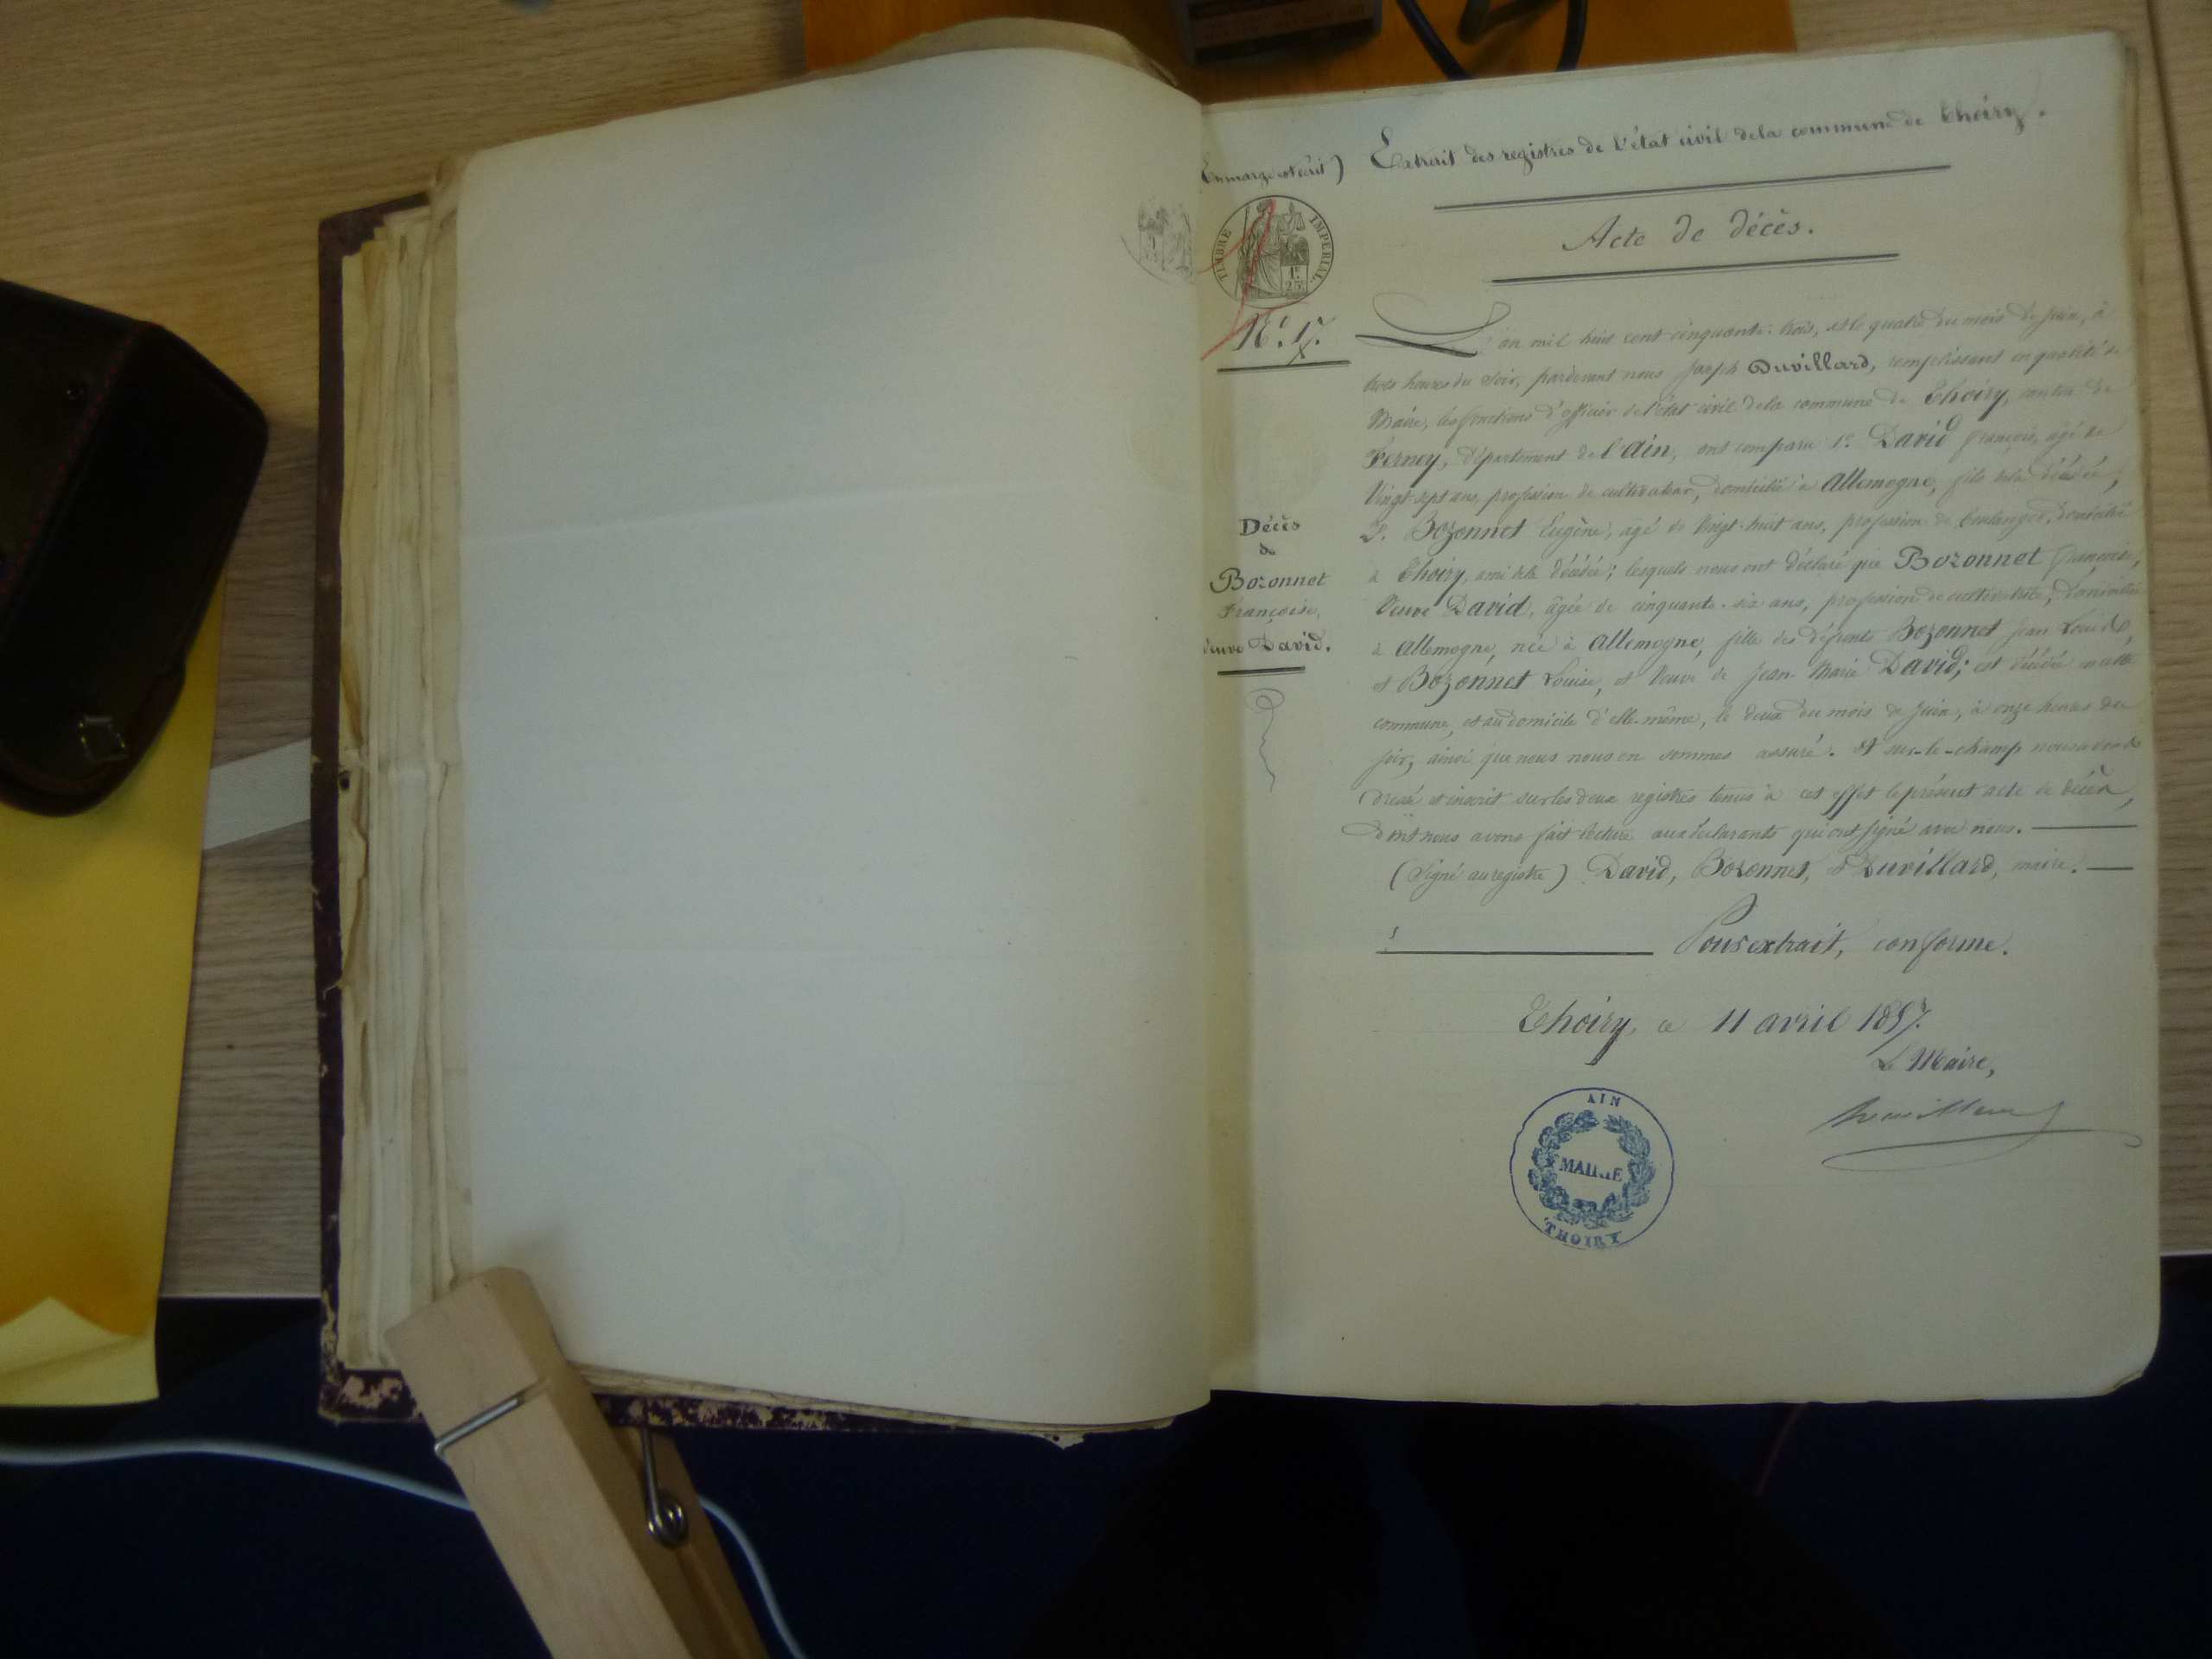 Extrait des registres de l'état civil de la commune de Thoiry.
(En marge est écrit)
TIMBRE IMPERIAL
1F
25
N°. 17.
Acte de décès.
Décès
de
Bozonnet
Françoise,
Veuve David.
L'an mil huit cent cinquante-trois, et le quatre du mois de Juin, à
trois heures du soir, pardevant nous Joseph Duvillard, remplissant en qualité de
Maire, les fonctions d'officier de l'état civil de la commune de Thoiry, canton de
Ferney, département de l'Ain, ont comparu 1°. David François, âgé de
Vingt-sept ans, profession de cultivateur, domicilié à Allemogne, fils de la décédée,
2°. Bozonnet Eugène, âgé de Vingt-huit ans, profession de boulanger, domicilié
à Thoiry, ami de la décédée; lesquels nous ont déclaré que Bozonnet Françoise,
Veuve David, âgée de cinquante-six ans, profession de cultivatrice, domiciliée
à Allemogne, née à Allemogne, fille des défunts Bozonnet Jean Louis
et Bozonnet Louise, et Veuve de Jean-Marie David; est décédée en cette
commune, et au domicile d'elle-même, le deux du mois de Juin, à onze heures du
soir, ainsi que nous nous en sommes assuré. Et sur-le-champ nous avons
dressé et inscrit sur les deux registres tenus à cet effet le présent acte de décès,
dont nous avons fait lecture aux déclarants qui ont signé avec nous.
(Signé au registre) David, Bozonnet, et Duvillard, maire.
Pour extrait, conforme.
Thoiry, ce 11 avril 1857.
Le Maire,
Duvillard
AIN
MAIRIE
THOIRY